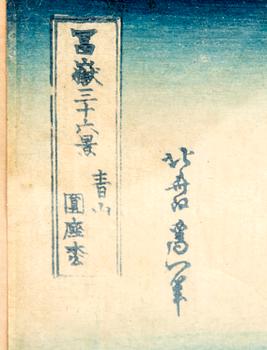 冨嶽三十六景
青山
圓座枩
北斎改為一筆